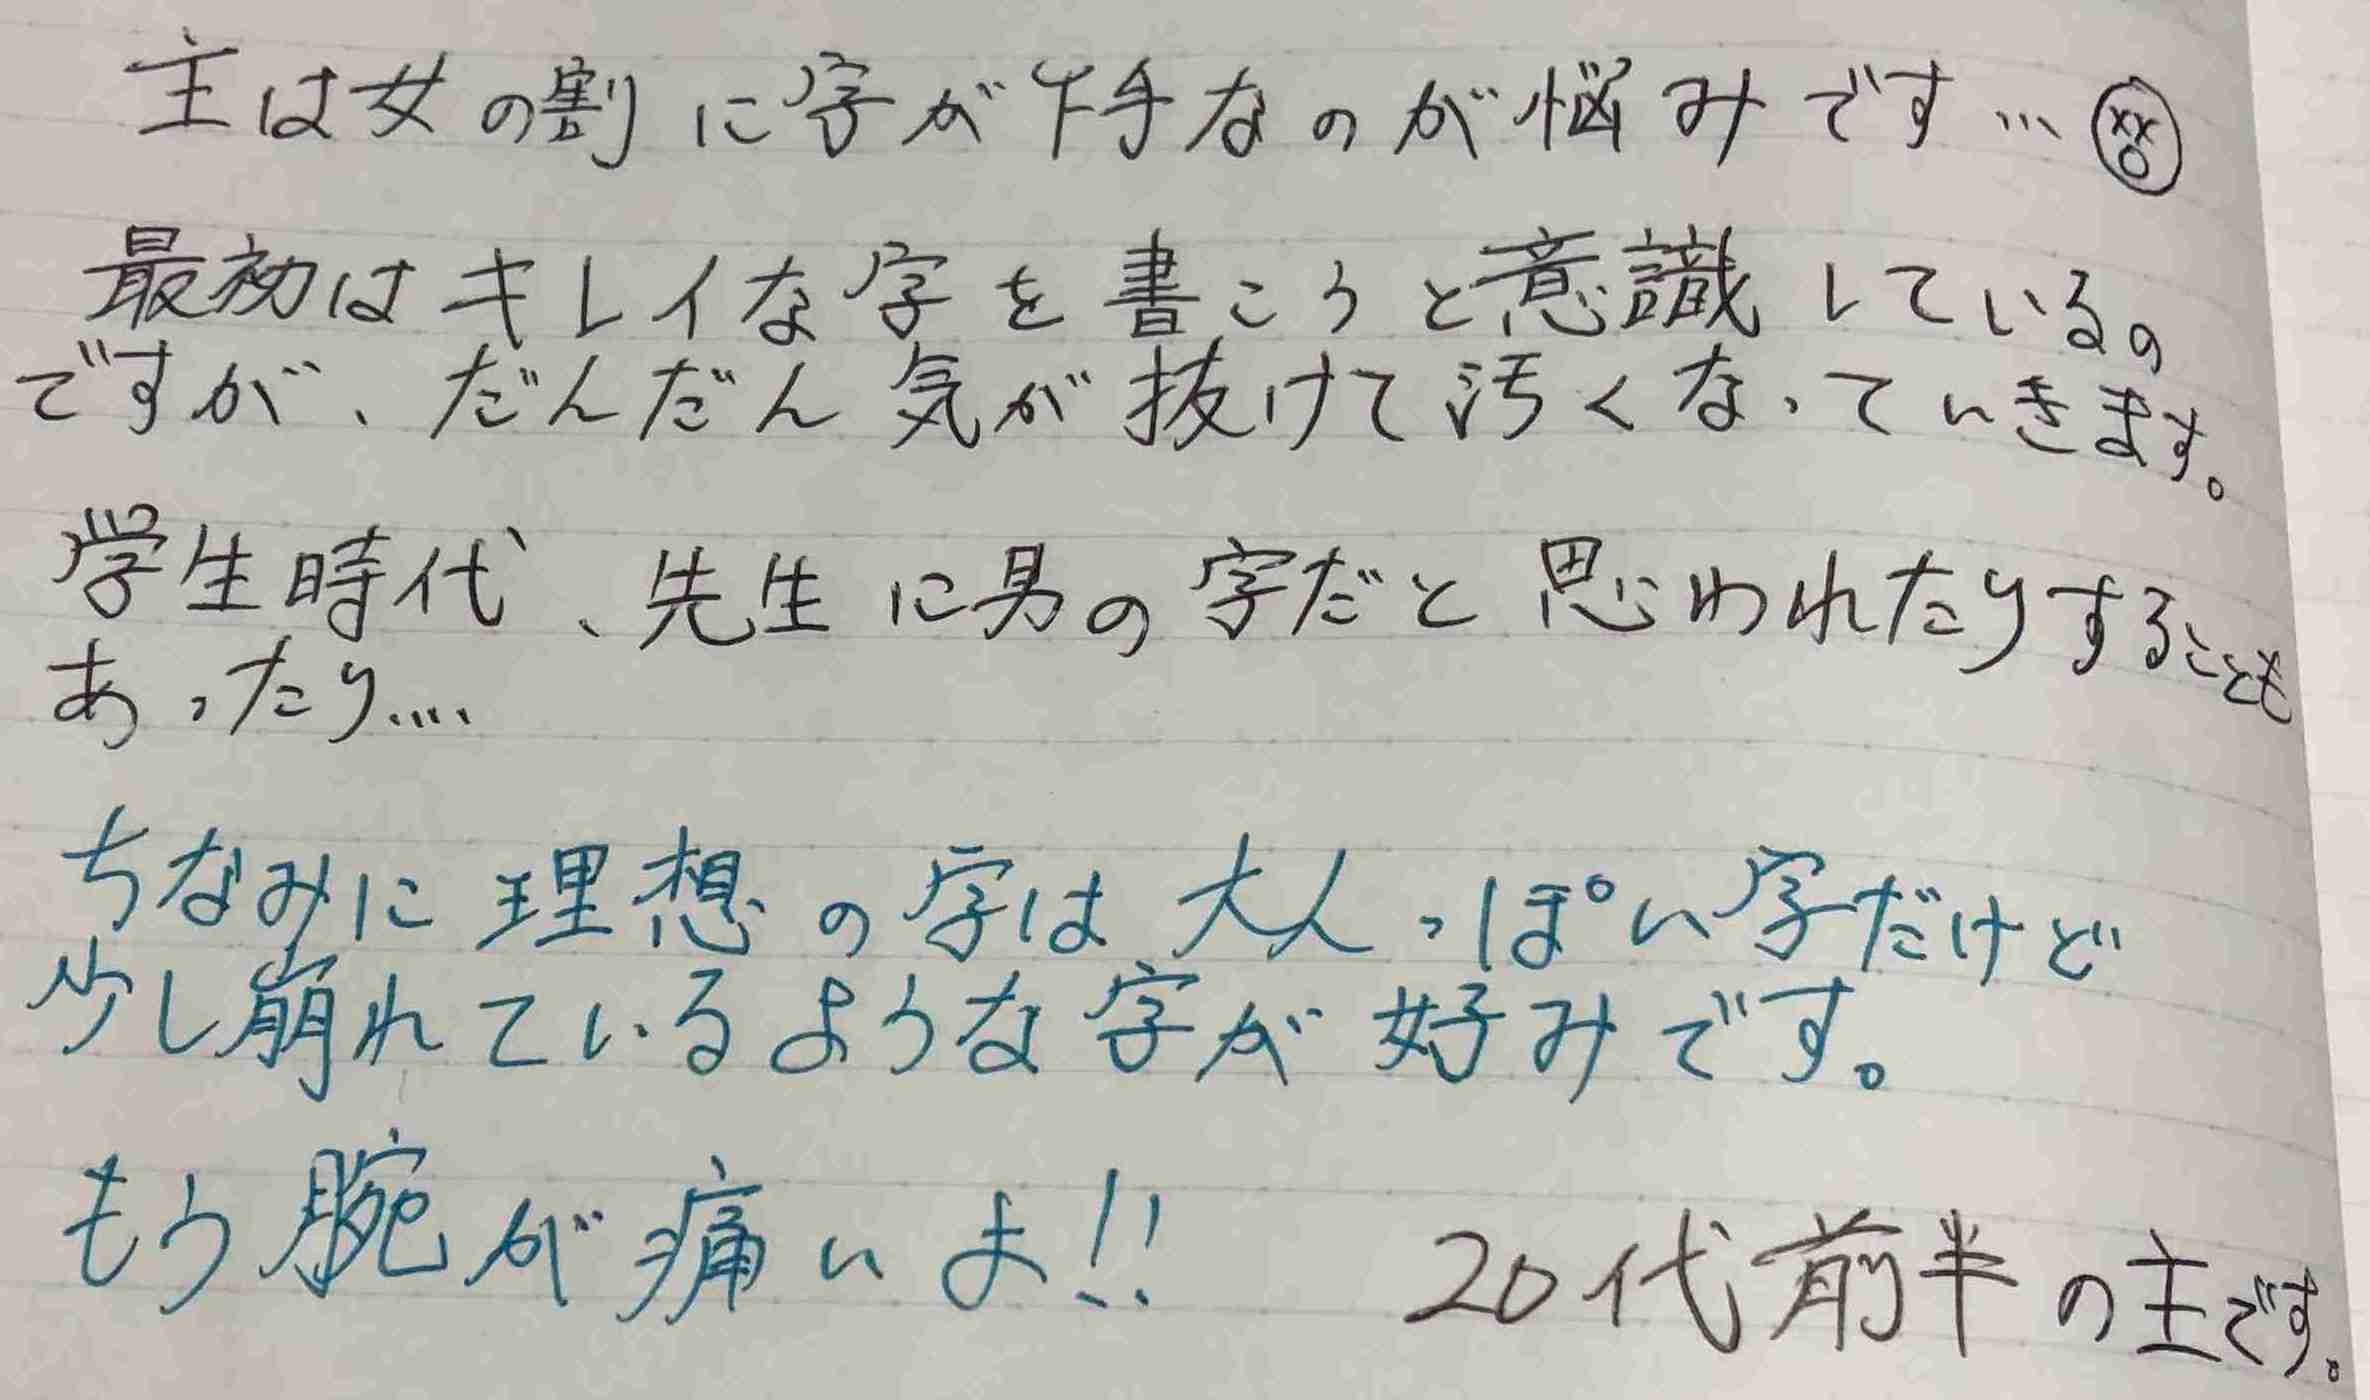 主は女の割に字が下手なのが悩みです…
最初はキレイな字を書こうと意識しているの
ですが、だんだん気が抜けて汚くなっていきます。
学生時代、先生に男の字だと思われたりすることも
あったり....
ちなみに理想の字は大人っぽい字だけど
少し崩れているような字が好みです。
もう腕が痛いよ!!
20代前半の主です。